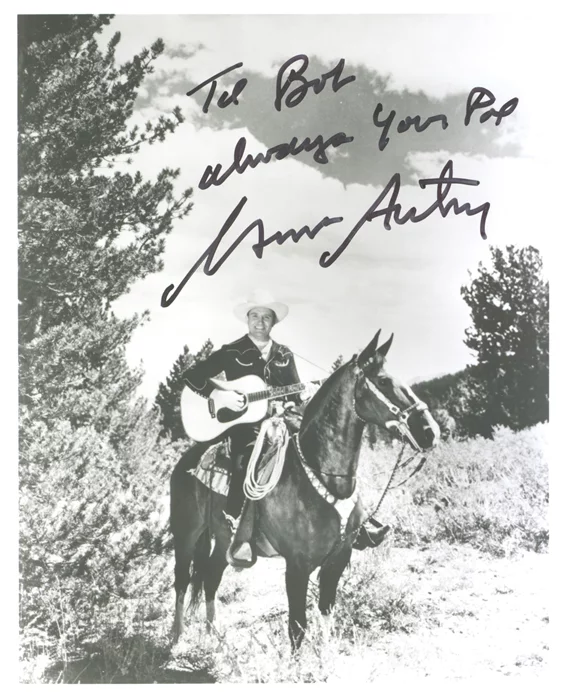 To Bob
always Your Pal
Gene Autry